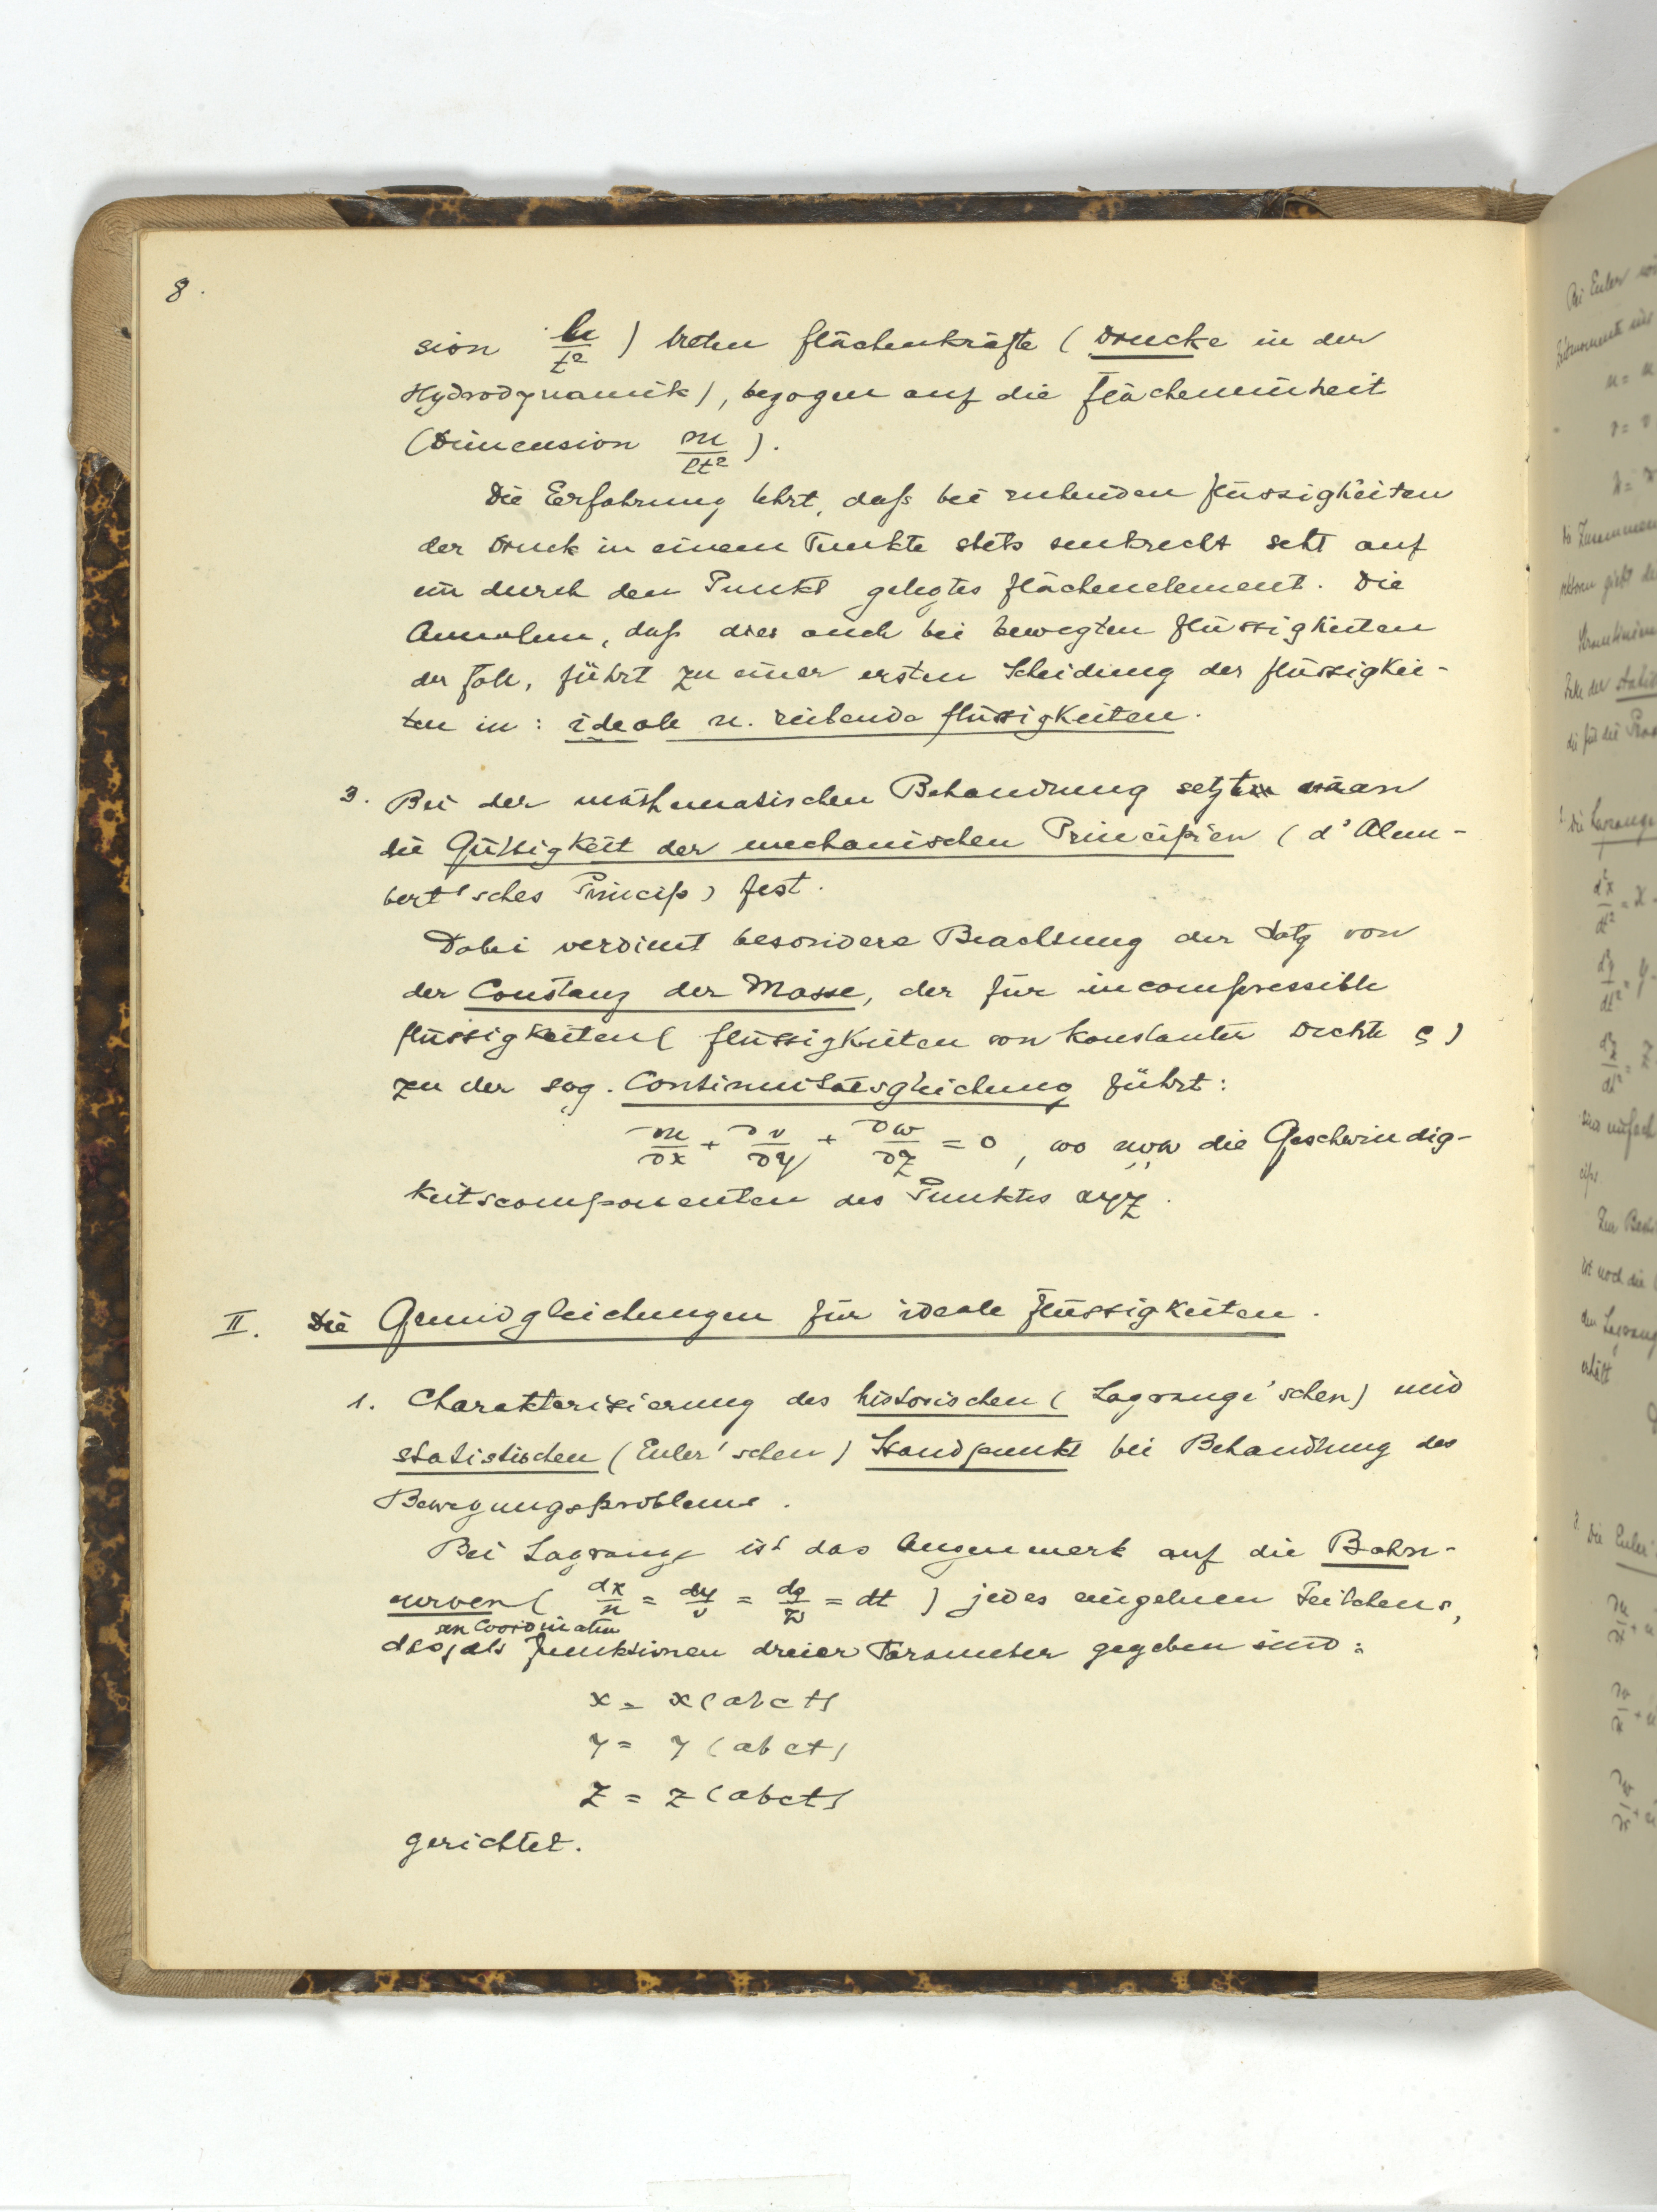 8.
sion lu/t² ) treten Flächenkräfte (Drucke in der
Hydrodynamik), bezogen auf die Flächeneinheit
(Dimension m/lt² ).
Die Erfahrung lehrt, daß bei ruhenden Flüssigkeiten
der Druck in einem Punkte stets senkrecht seht auf
ein durch den Punkt gelegtes Flächenelement. Die
Annahm, daß dies auch bei bewegten Flüssigkeiten
der Fall, führt zu einer ersten Scheidung der Flüssigkei-
ten in : ideale u. reibende Flüssigkeiten.
3. Bei der mathematischen Behandlung setzt man
die Gültigkeit der mechanischen Principien (d'Alem-
bert'sches Princip) fest.
Dabei verdient besondere Beachtung der Satz von
der Constanz der Masse, der für incompressible
Flüssigkeiten ( Flüssigkeiten von konstanter Dichte ϱ )
zu der sog. Continuitätsgleichung führt:
∂u/∂x + ∂v/∂y + ∂w/∂z = 0 , wo u,v,w die Geschwindig-
keitscomponenten des Punktes xyz.
II. Die Grundgleichungen für ideale Flüssigkeiten.
1. Charakterisierung des historischen ( Lagrange'schen) und
statistischen (Euler'schen) Standpunkt bei Behandlung des
Bewegungsproblems.
Bei Lagrange ist das Augenmerk auf die Bahn-
curven ( dx/u = dy/v = dz/w = dt ) jedes einzelnen Teilchens,
Coordinaten
als Funktionen dreier Parameter gegeben sind:
x = x(abct)
y = y(abct)
z = z(abct)
gerichtet.
Bei Euler
u =
v =
Die Lagrange
Die Euler'